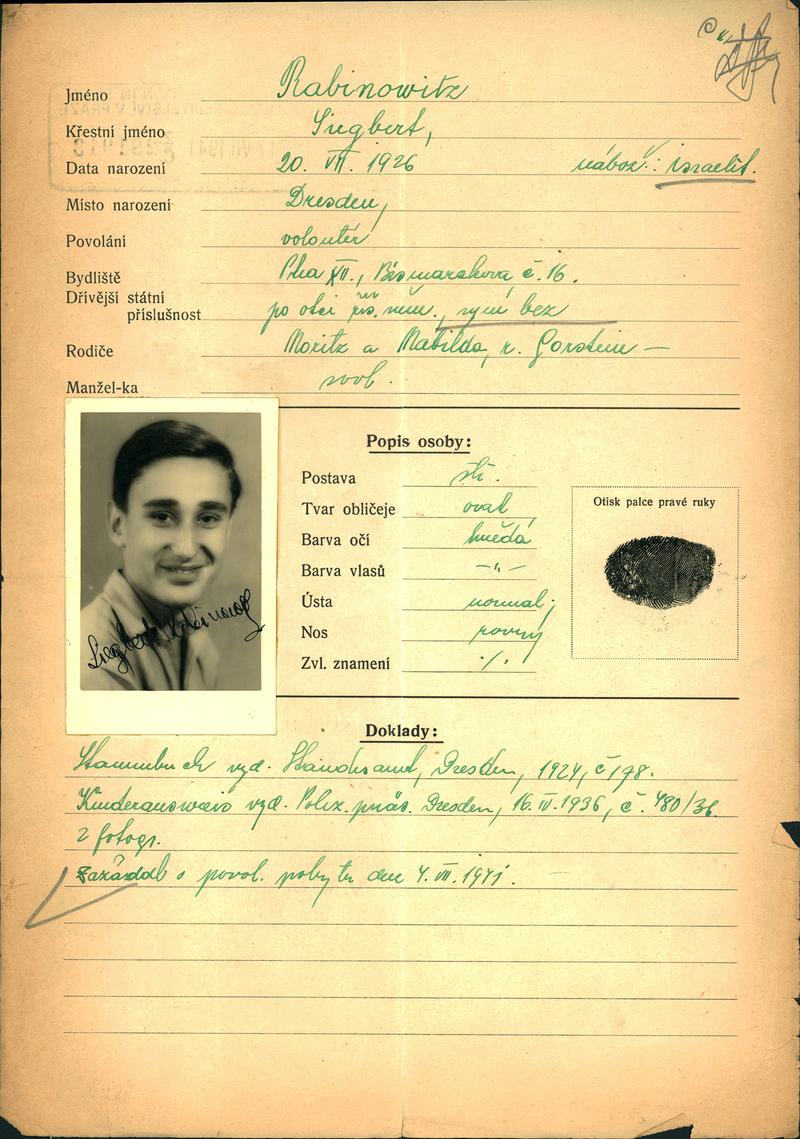 Jméno Rabinowitz
Křestní jméno Siegbert,
Data narození 20. VII. 1926 nábož.: israelit.
Místo narození Dresden,
Povolání volontér
Bydliště Pha XII., Bismarckova č. 16.
Dřívější státní
příslušnost po otci říš. něm., nyní bez
Rodiče Moritz a Mathilda, r. Gorstein —
Manžel-ka svob.
Popis osoby:
Postava stř.
Tvar obličeje oval,
Barva očí hnědá
Barva vlasů —„—
Ústa normal,
Nos rovný
Zvl. znamení ·/.
Otisk palce pravé ruky
Siegbert Rabinowitz
Doklady:
Stammbuch vyd. Standesamt, Dresden, 1924, č 198.
Kinderausweis vyd. Poliz. präs. Dresden, 16. IV. 1936, č. 480/36.
2 fotogr.
zažádal o povol. pobytu dne 4. VII. 1941.